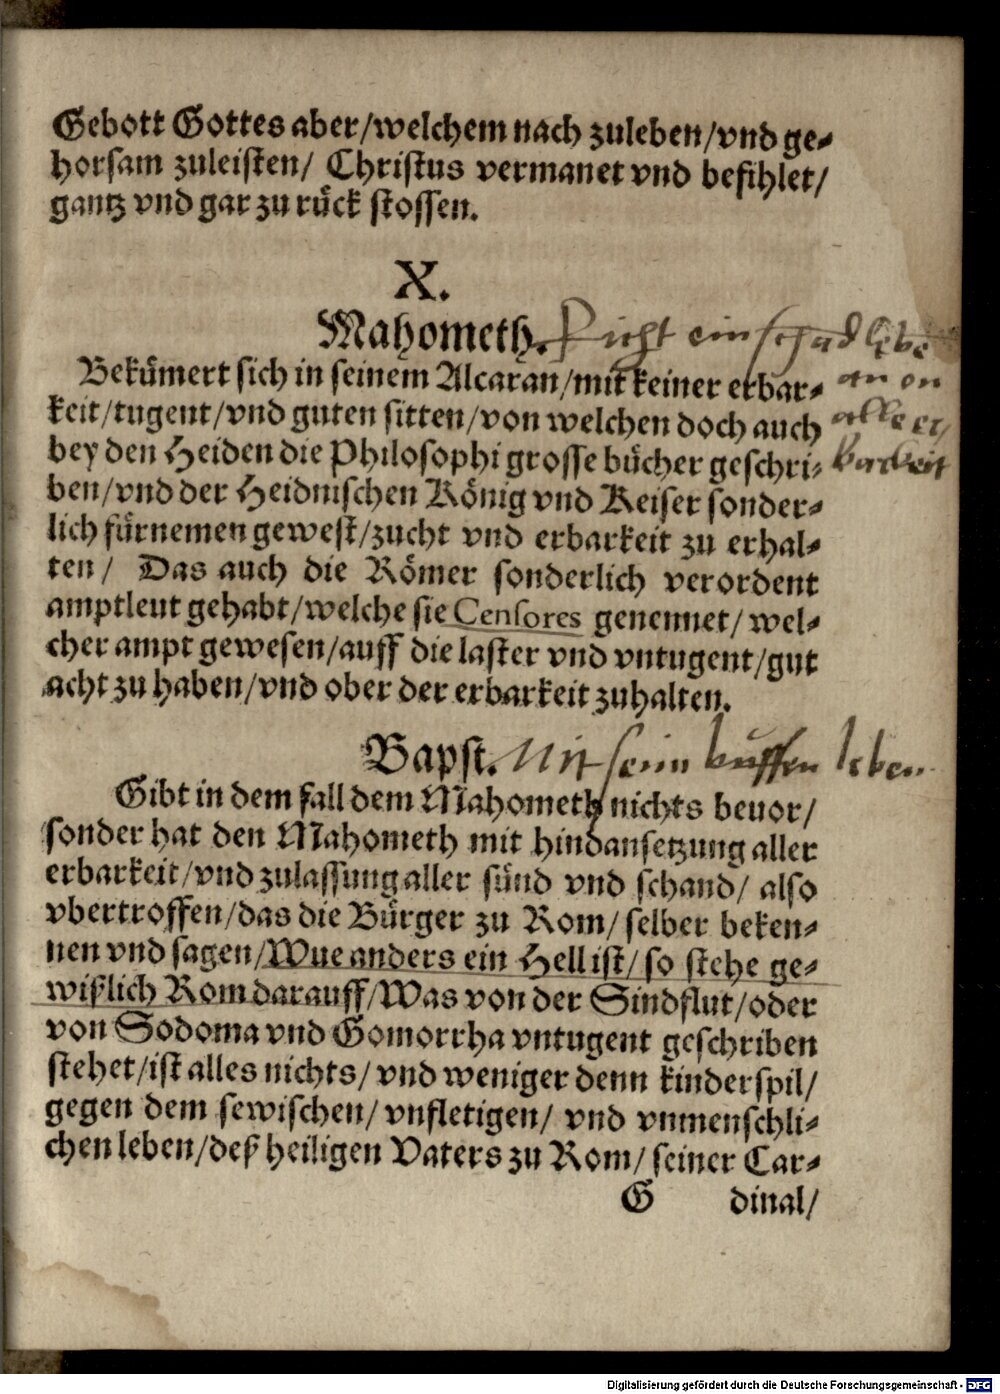 Gebott Gottes aber/welchem nach zuleben/vnd ge⸗
horsam zuleisten/ Christus vermanet vnd befihlet/
gantz vnd gar zu rück stossen.
X.
Mahometh. Richt ein schad lebe
Bekümert sich in seinem Alcaran/mit keiner erbar⸗ an on
keit/tugent/vnd guten sitten/von welchen doch auch alle er/
bey den Heiden die Philosophi grosse bücher geschri⸗ barkeit
ben/vnd der Heidnischen König vnd Keiser sonder⸗
lich fürnemen gewest/zucht vnd erbarkeit zu erhal⸗
ten/ Das auch die Römer sonderlich verordent
amptleut gehabt/welche sie Censores genennet/ wel⸗
cher ampt gewesen/auff die laster vnd vntugent/gut
acht zu haben/vnd ober der erbarkeit zuhalten.
Bapst. Mit seim leben
Gibt in dem fall dem Mahometh nichts beuor/
sonder hat den Mahometh mit hindansetzung aller
erbarkeit/vnd zulassung aller sünd vnd schand/ also
vbertroffen/das die Bürger zu Rom/ selber beken⸗
nen vnd sagen/Wue anders ein Hell ist/ so stehe ge⸗
wißlich Rom darauff/Was von der Sindflut/oder
von Sodoma vnd Gomorrha vntugent geschriben
stehet/ist alles nichts/ vnd weniger denn kinderspil/
gegen dem sewischen/ vnfletigen/ vnd vnmenschli⸗
chen leben/deß heiligen Vaters zu Rom/ seiner Car⸗
G dinal/
Digitalisierung gefördert durch die Deutsche Forschungsgemeinschaft - DFG